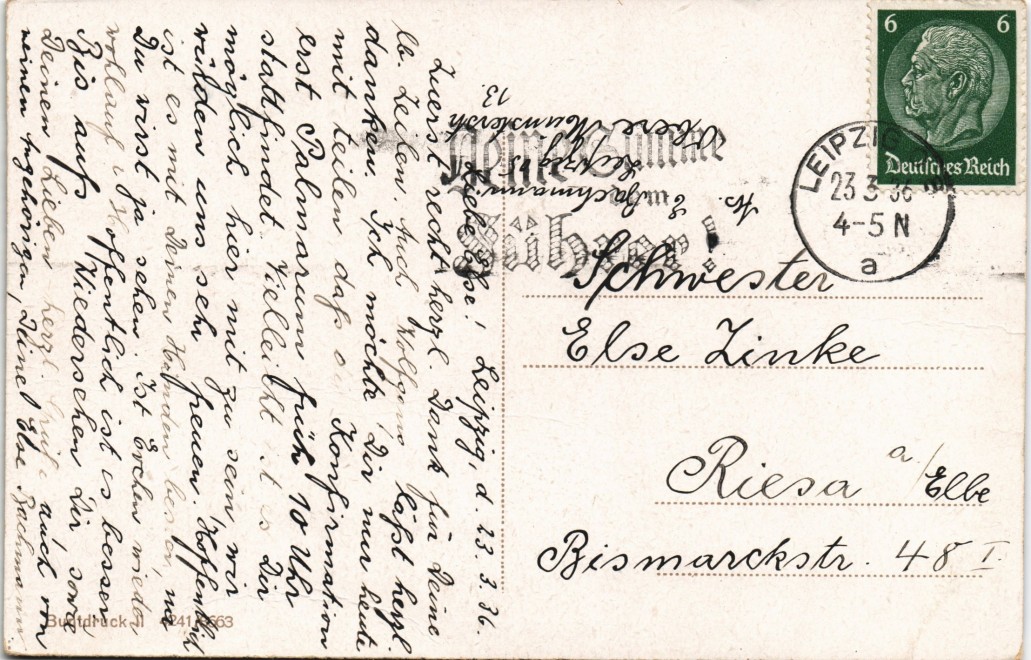 6 6
Deutsches Reich
LEIPZIG
23 3 36
4-5 N
a
Deine Stimme
dem
Führer!
Schwester
Else Zinke
Riesa a/Elbe
Bismarckstr. 48 I.
E. Bachmann
Leipzig
Obere Münsterstr
13.
Leipzig, d. 23.3.36.
Liebe Else!
Zuerst recht herzl. Dank für Deine
lb. Zeilen. Auch Wolfgang läßt herzl.
danken. Ich möchte Dir nur heute
mit teilen daß die Konfirmation
erst Palmarum früh 10 Uhr
stattfindet. Vielleicht ist es Dir
möglich hier mit zu sein wir
würden uns sehr freuen. Hoffentlich
ist es mit Deinen Händen besser, na
Du wirst ja sehen. Ist Evchen wieder
wohlauf? Hoffentlich ist es besser
Bis aufs Wiedersehen Dir sowie
Deinen Lieben herzl. Grüße auch von
meinen Angehörigen, Deine Else Bachmann
Buntdruck II 4241/6663